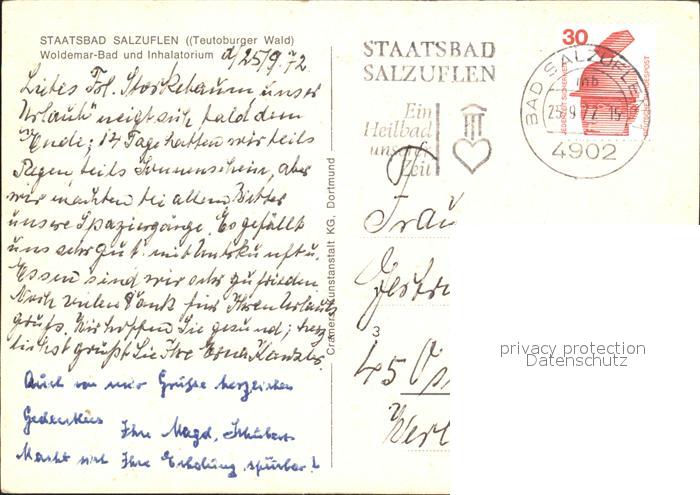 STAATSBAD SALZUFLEN ((Teutoburger Wald)
Woldemar-Bad und Inhalatorium d/25/9.72.
Liebes Frl. Storkebaum, unser
Urlaub neigt sich bald dem
Ende; 14 Tage hatten wir teils
Regen, teils Sonnenschein, aber
wir machten bei allem Wetter
unsere Spaziergänge. Es gefällt
uns sehr gut. mit Unterkunft u.
Essen sind wir sehr zufrieden.
Noch vielen Dank für Ihren Urlaubs
gruß. Wir hoffen Sie gesund; herz
lichst grüßt Sie Ihre Erna
Auch von mir Grüße herzlichen
Gedenkens Ihre Magd. Schubert
Macht sich Ihre Erholung spürbar?
Cramers Kunstanstalt KG, Dortmund
STAATSBAD
SALZUFLEN
Ein
Heilbad
unserer
Zeit
BAD SALZUFLEN 1
mb
25.9.72-15
4902
30
JEDERZEIT SICHERHEIT
DEUTSCHE BUNDESPOST
Frau
3
45 Os
Wert
privacy protection
Datenschutz